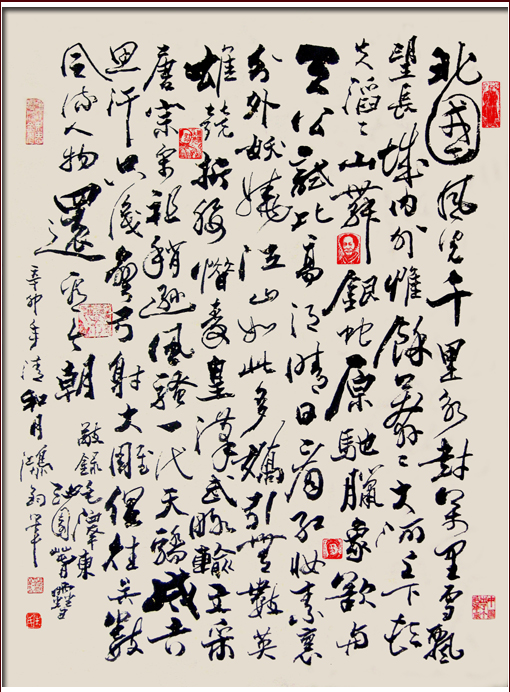 北國風光千里冰封萬里雪飄
望長城内外惟餘莽々大河上下頓
失滔々山舞銀蛇原馳臘象欲與
天公試比高須晴日看紅妝素裹
分外妖嬈江山如此多嬌引無數英
雄競折腰惜秦皇漢武略輸文采
唐宗宋祖稍遜風騷一代天驕成吉
思汗只識彎弓射大雕俱往矣數
風流人物還看今朝
敬錄毛澤東
沁園春雪
辛卯年清和月鴻鈞筆